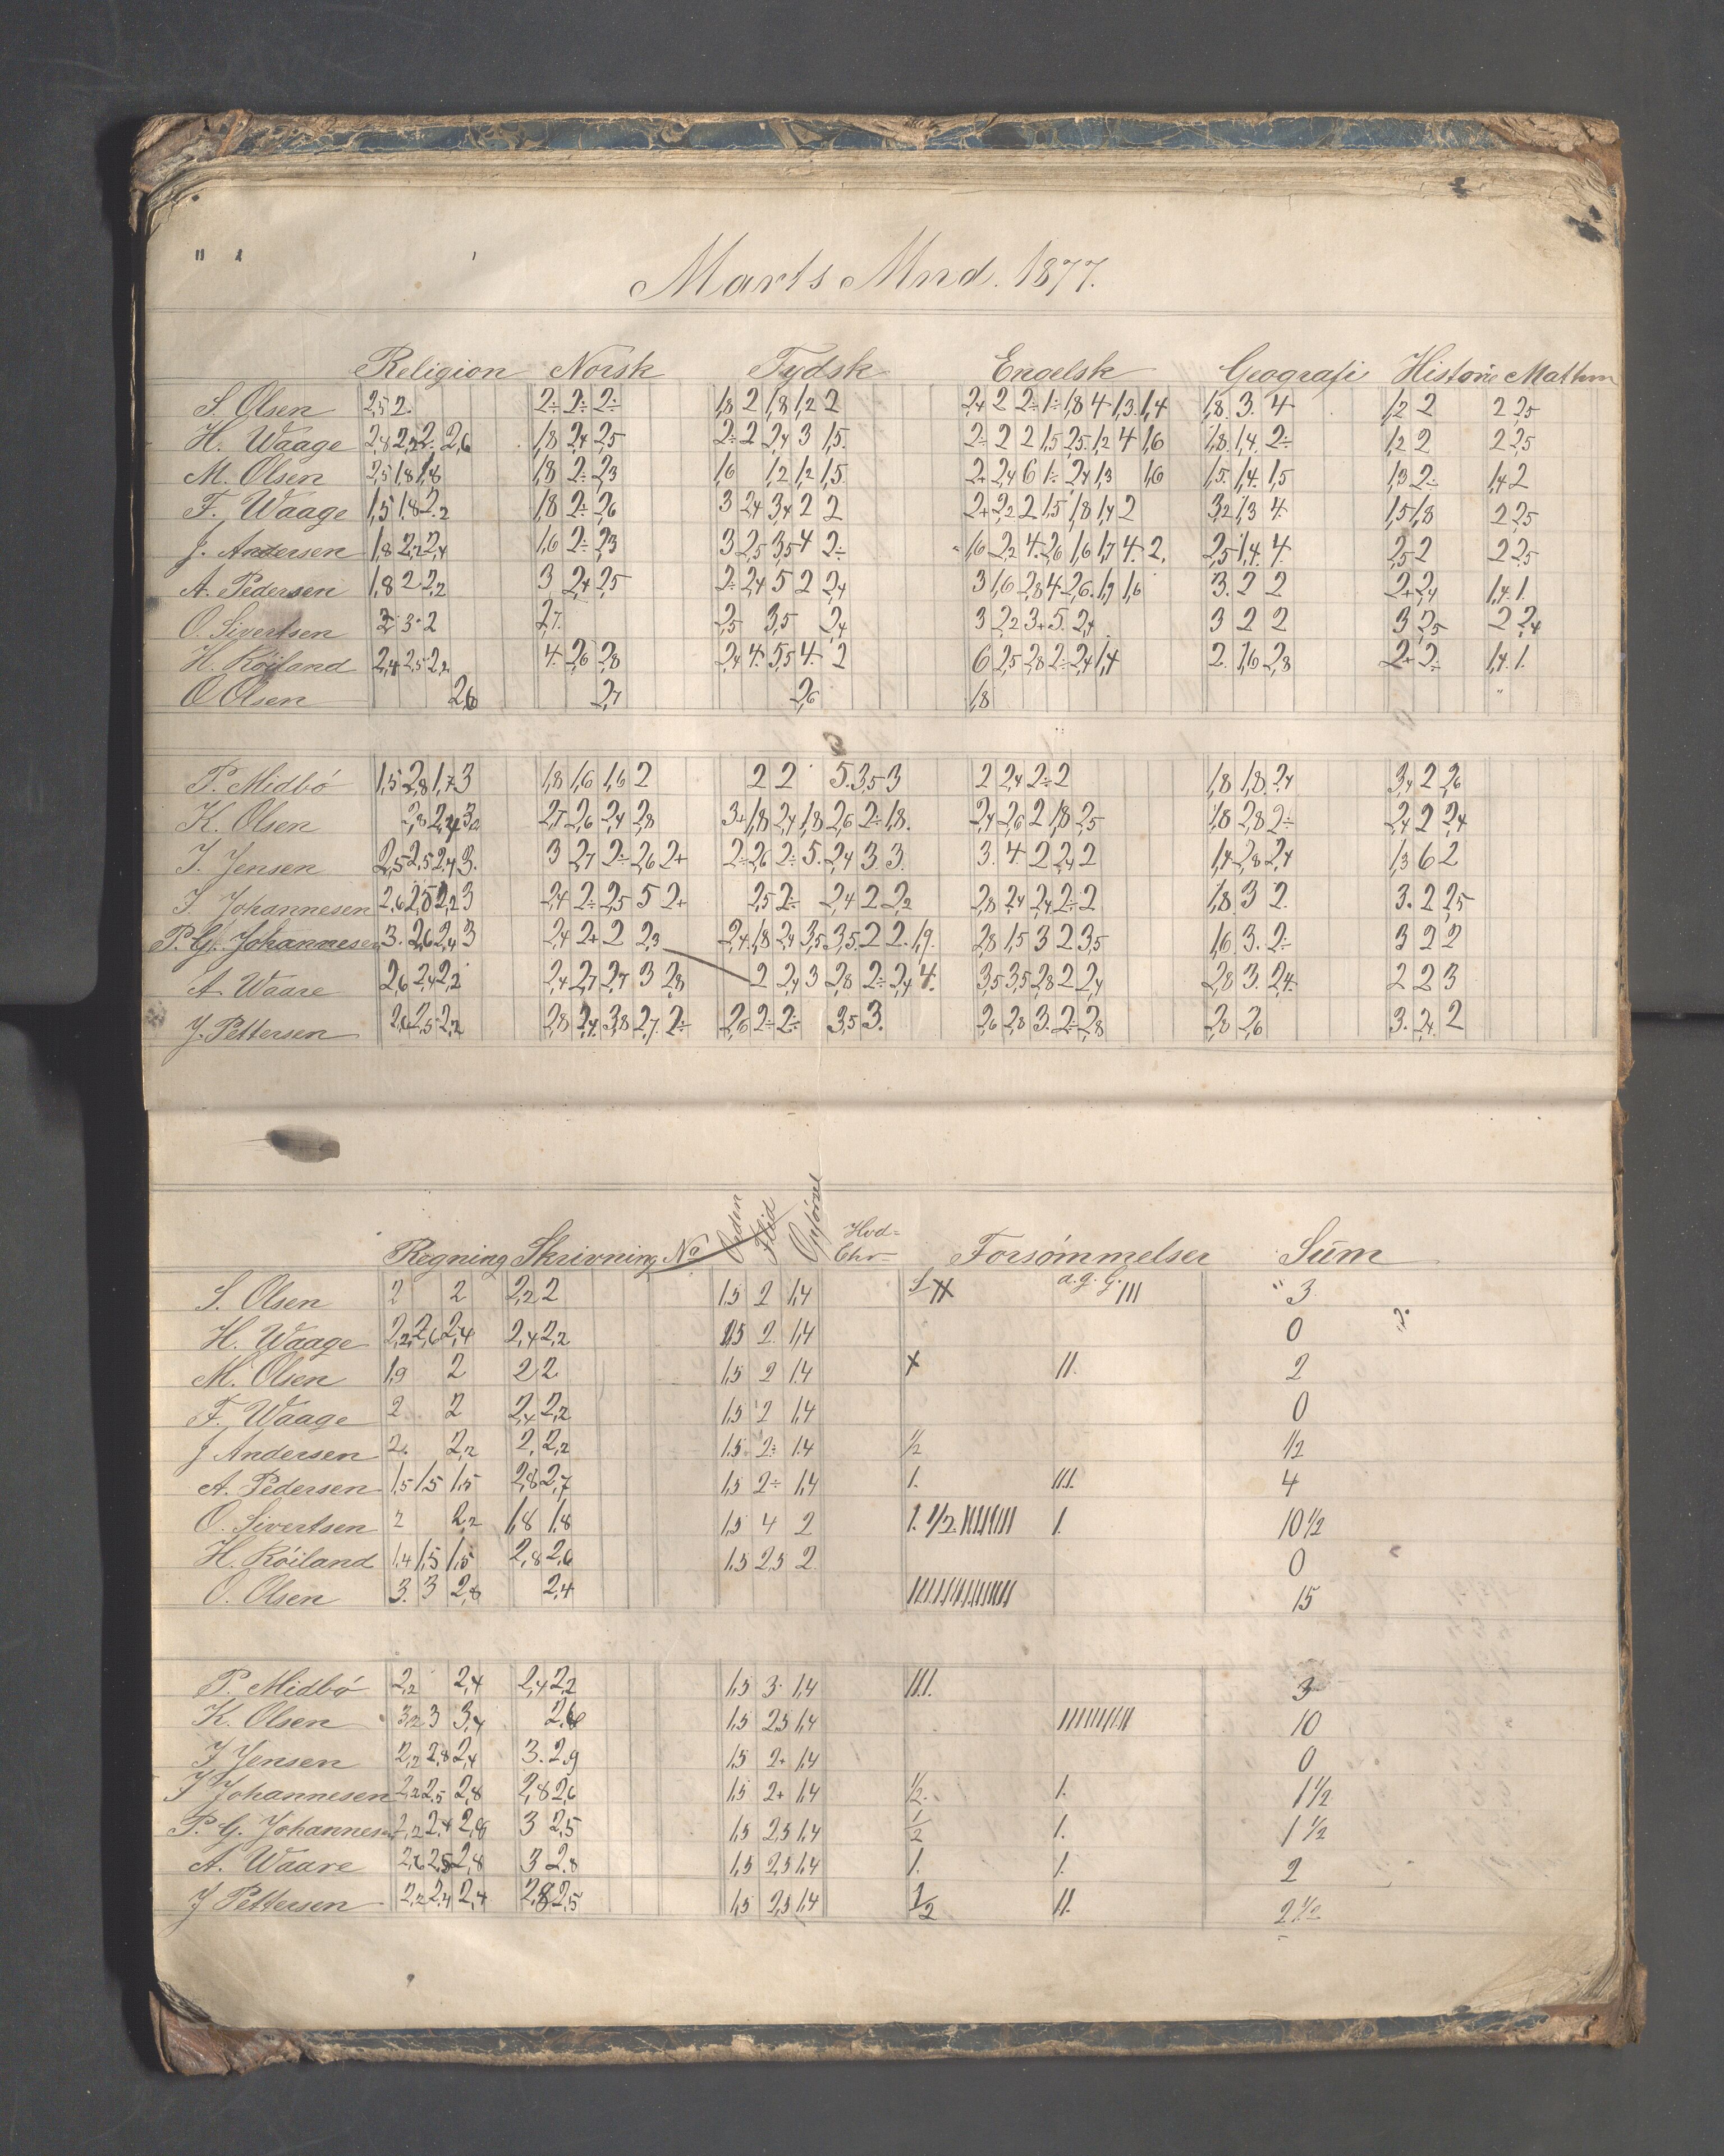 Marts Mnd. 1877.
Religion Norsk Tydsk Engelsk Geografi Historie Mathm
S. Olsen 2,5 2. 2÷ 2÷ 2÷ 1,8 2 1,8 1,2 2 2,4 2 2÷ 1÷ 1,8 4 1,3. 1,4 1,8. 3. 4 1,2 2 2 2,5
H. Waage 2,8 2,2 2. 2,6 1,8 2,4 2,5 2÷ 2 2,4 3 1,5. 2÷ 2 2 1,5 2,5. 1,2 4 1,6 1,8. 1,4. 2÷ 1,2 2 2 2,5
M. Olsen 2,5 1,8 1,8 1,8 2÷ 2,3 1,6 1,2 1,2 1,5. 2+ 2,4 6 1÷ 2,4 1,3 1,6 1,5. 1,4. 1,5 1,3 2÷ 1,4 2
F. Waage 1,5 1,8 2,2 1,8 2÷ 2,6 3 2,4 3,4 2 2 2+ 2,2 2 1,5 1,8 1,4 2 3,2 1,3 4. 1,5 1,8 2 2,5
J. Andersen 1,8 2,2 2,4 1,6 2÷ 2,3 3 2,5 3,5 4 2÷ 1,6 2,2 4. 2,6 1,6 1,7 4. 2. 2,5 1,4. 4. 2,5 2 2 2,5
A. Pedersen 1,8 2 2,2 3 2,4 2,5 2÷ 2,4 5 2 2,4 3 1,6 2,8 4. 2,6. 1,9 1,6 3. 2 2 2+ 2,4 1,4. 1.
O. Sivertsen 2 3 2 2,7. 2,5 3,5 2,4 3 2,2 3+ 5. 2,4 3 2 2 3 2,5 2 2,4
H. Röiland 2,4 2,5 2,2 4. 2,6 2,8 2,4 4. 5,5 4. 2 6 2,5 2,8 2÷ 2,4 1,4 2. 1,6 2,8 2+ 2÷ 1,4. 1.
O Olsen 2,6 2,7 2,6 1,8
P. Midbö 1,5 2,8 1,7 3 1,8 1,6 1,6 2 2 2 5. 3,5 3 2 2,4 2÷ 2 1,8 1,8. 2,4 3,4 2 2,6
K. Olsen 2,8 2,4 3,2 2,7 2,6 2,4 2,8 3+ 1,8 2,4 1,8 2,6 2÷ 1,8. 2,4 2,6 2 1,8 2,5 1,8 2,8 2÷ 2,4 2 2,4
I. Jensen 2,5 2,5 2,4 3. 3 2,7 2÷ 2,6 2+ 2÷ 2,6 2÷ 5. 2,4 3 3. 3. 4. 2 2,4 2 1,4 2,8 2,4 1,3 6 2
I. Johannesen 2,6 2,5 2,2 3 2,4 2÷ 2,5 5 2+ 2,5 2÷ 2,4 2 2,2 2,8 2,4 2,4 2÷ 2 1,8 3 2. 3. 2 2,5
P. G. Johannesen 3. 2,6 2,4 3 2,4 2+ 2 2,3 2,4. 1,8 2,4 3,5 3,5. 2 2. 1,9. 2,8 1,5 3 2 3,5 1,6 3. 2÷ 3 2 2
A Waare 2,6 2,4 2,2 2,4 2,7 2,7 3 2,8 2 2,4 3 2,8 2÷ 2,4 4. 3,5 3,5 2,8 2 2,4 2,8 3. 2,4. 2 2 3
J. Pettersen 2,6 2,5 2,2 2,8 2,4. 3,8 2,7. 2÷ 2,6 2÷ 2÷ 3,5 3. 2,6 2,8 3. 2÷ 2,8 2,8 2,6 3. 2,4. 2
Regning Skrivning No Orden Flid Opförsel Hvd= Chr Forsömmelser Süm
S. Olsen 2 2 2,2 2 1,5 2 1,4 d.g.G. III 3
H. Waage 2,2 2,6 2,4 2,4 2,2 1,5 2 1,4 0
M. Olsen 1,9 2 2 2 1,5 2 1,4 x II. 2
F. Waage 2 2 2,4 2,2 1,5 2 1,4 0
J Andersen 2. 2,2 2. 2,2 1,5 2÷ 1,4 1/2 1/2
A. Pedersen 1,5 1,5 1,5 2,8 2,7 1,5 2÷ 1,4 1. III. 4
O. Sivertsen 2 2,2 1,8 1,8 1,5 4 2 1. 1/2 IIIIIIII 1. 10 1/2
H. Röiland 1,4 1,5 1,5 2,8 2,6 1,5 2,5 2 0
O. Olsen 3. 3 2,8 2,4 IIIIIIIIIIIIIII 15
P. Midbö 2,2 2,4 2,4 2,2 1,5 3 1,4 III. 3
K. Olsen 3,2 3 3,4 2,6 1,5 2,5 1,4 IIIIIIIIII 10
I Jensen 2,2 2,8 2,4 3. 2,9 1,5 2+ 1,4 0
I Johannesen 2,2 2,5 2,8 2,8 2,6 1,5 2+ 1,4 1/2. 1. 1 1/2
P. G. Johannesen 2,2 2,4 2,8 3 2,5 1,5 2,5 1,4 1/2 1. 1 1/2
A. Waare 2,6 2,5 2,8 3 2,8 1,5 2,5 1,4 1. 1. 2
J Pettersen 2,2 2,4 2,4 2,8 2,5 1,5 2,5 1,4 1/2 II. 2 1/2